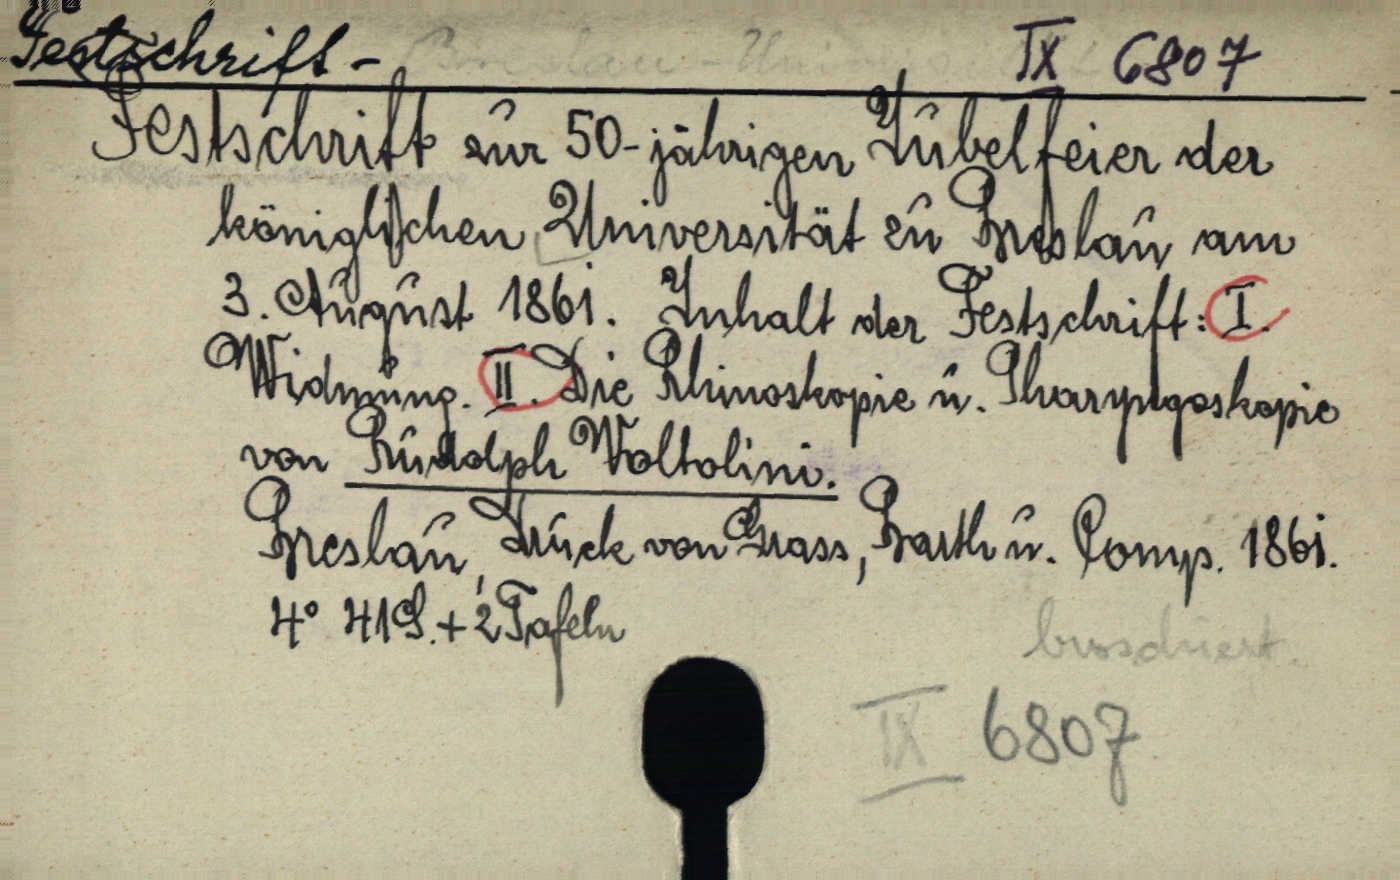 Festschrift - Breslau - IX 6807
Festschrift zur 50-jährigen Jubelfeier der
königlichen Universität zu Breslau am
3. August 1861. Inhalt der Festschrift: I.
Widmung. II. Die Rhinoskopie u. Pharyngoskopie
von Rudolph Voltolini.
Breslau, Druck von Grass, Barth u. Comp. 1861.
4° 41S. + 2 Tafeln
broschiert.
IX 6807